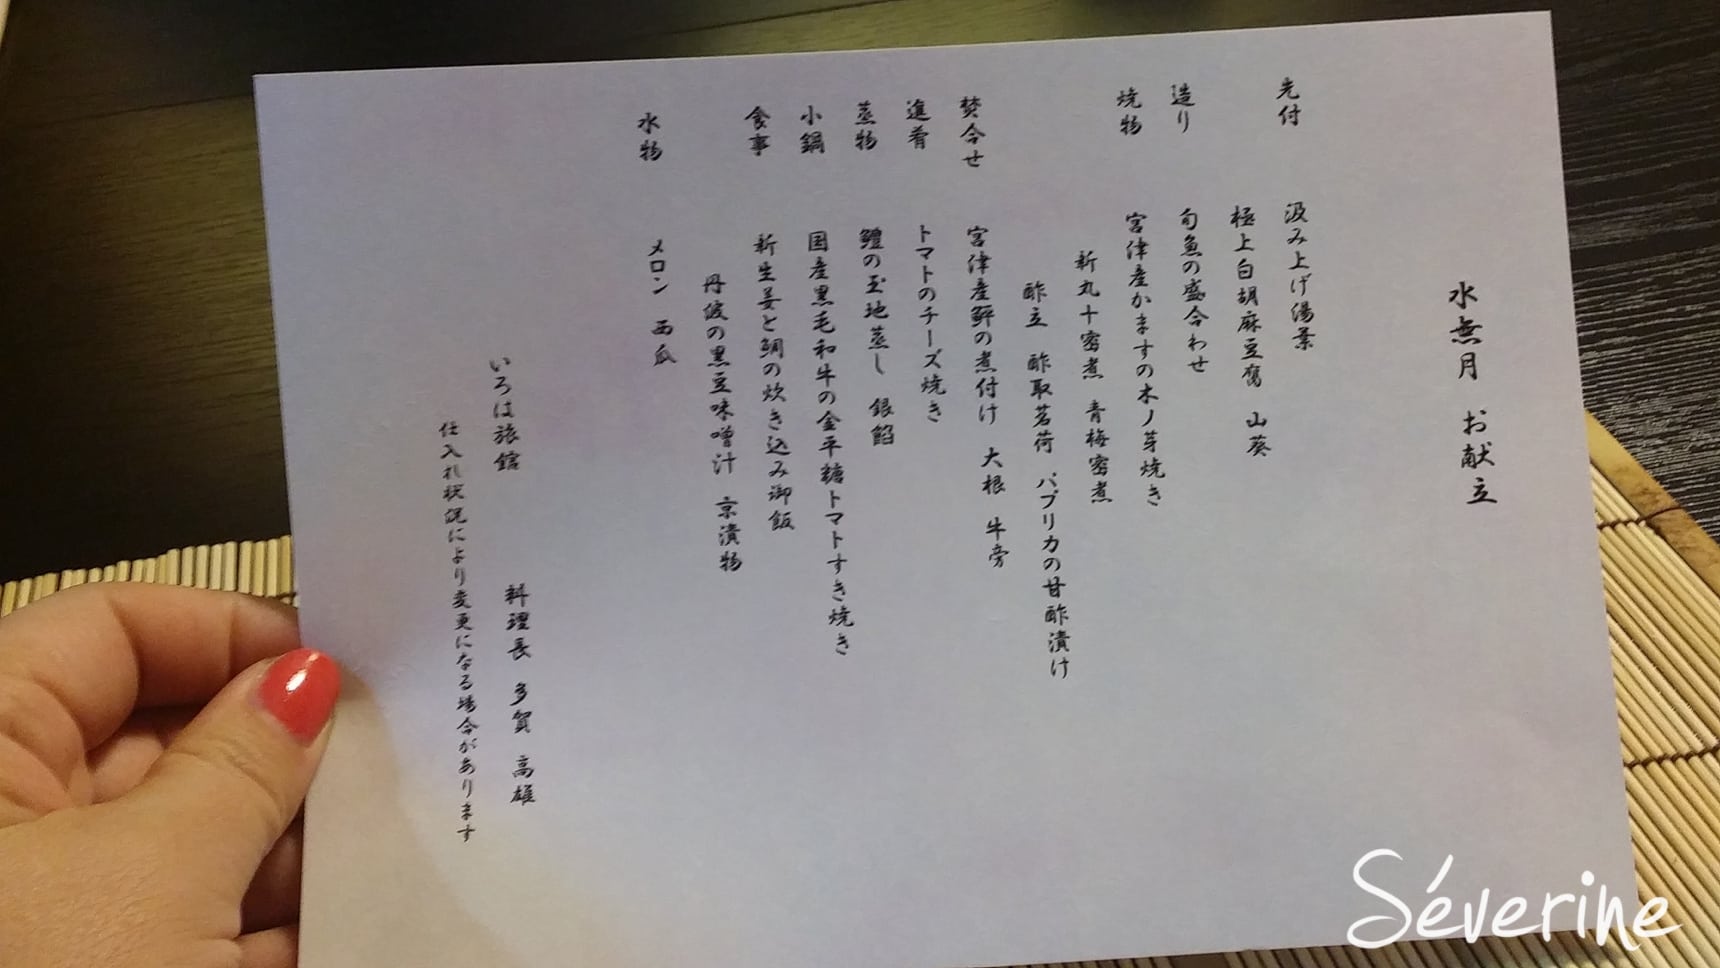 水無月 お献立
先付 汲み上げ湯葉
極上白胡麻豆腐 山葵
造り 旬魚の盛合わせ
焼物 宮津産かますの木ノ芽焼き
新丸十密煮 青梅密煮
酢立 酢取茗荷 パプリカの甘酢漬け
焚合せ 宮津産鮃の煮付け 大根 牛旁
進肴 トマトのチーズ焼き
蒸物 鱧の玉地蒸し 銀餡
小鍋 国産黒毛和牛の金平糖トマトすき焼き
食事 新生姜と鯛の炊き込み御飯
丹波の黒豆味噌汁 京漬物
水物 メロン 西瓜
いろは旅館 料理長 多賀 高雄
仕入れ状況により変更になる場合があります
Séverine